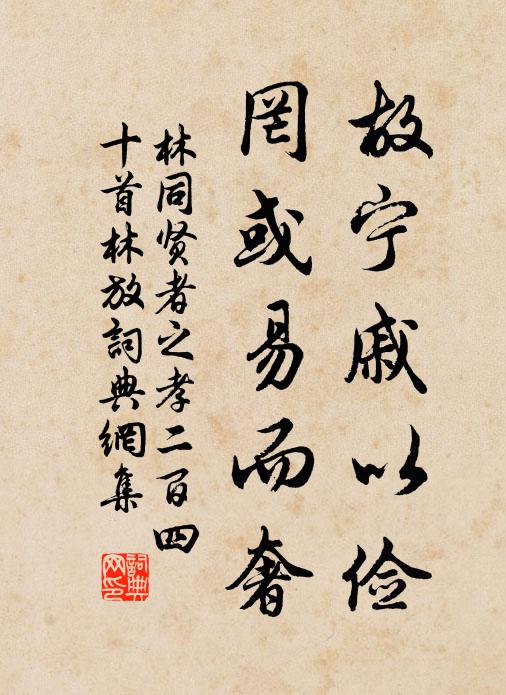 故宁戚以俭
罔或易而奢
林同贤者之孝二百四
十首林放詞典網集
詞典
网印